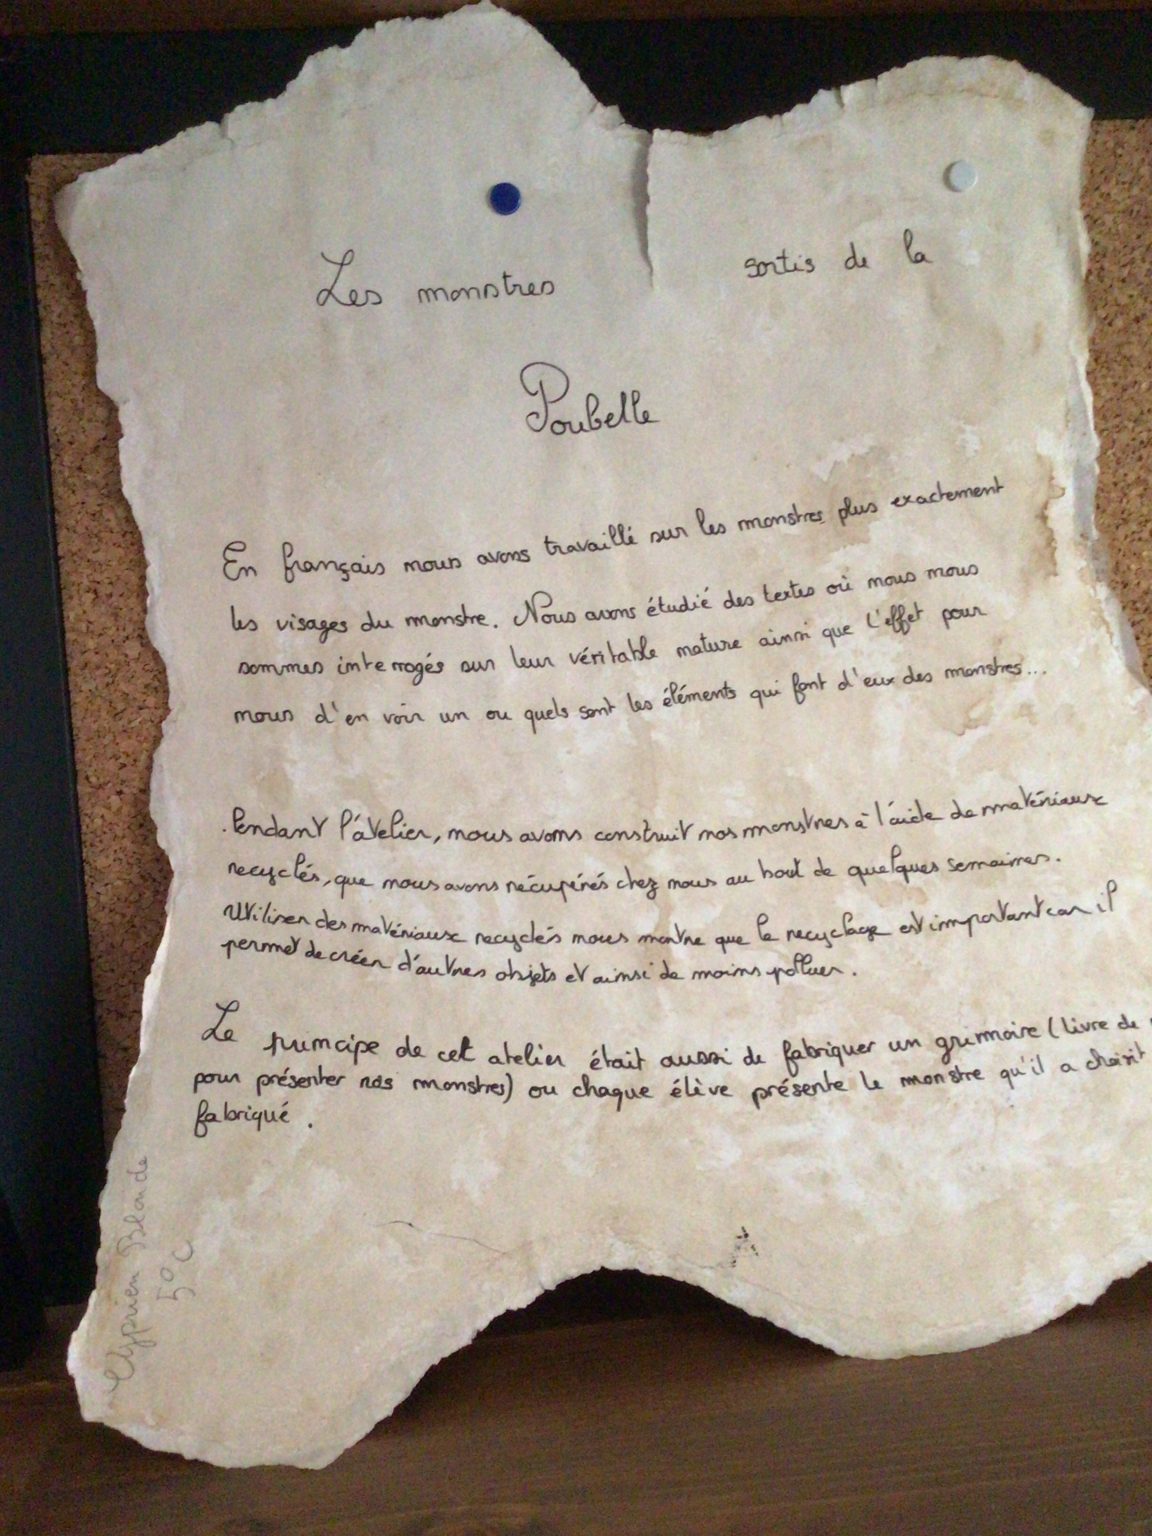 Les monstres sortis de la
Poubelle
En français nous avons travaillé sur les monstres plus exactement
les visages du monstre. Nous avons étudié des textes où nous nous
sommes interrogés sur leur véritable nature ainsi que l'effet pour
nous d'en voir un ou quels sont les éléments qui font d'eux des monstres...
Pendant l'atelier, nous avons construit nos monstres à l'aide de matériaux
recyclés, que nous avons récupérés chez nous au bout de quelques semaines.
Utiliser des matériaux recyclés nous montre que le recyclage est important car il
permet de créer d'autres objets et ainsi de moins polluer.
Le principe de cet atelier était aussi de fabriquer un grimoire (livre de
pour présenter nos monstres) ou chaque élève présente le monstre qu'il a choisit
fabriqué.
Cyprien
5°C